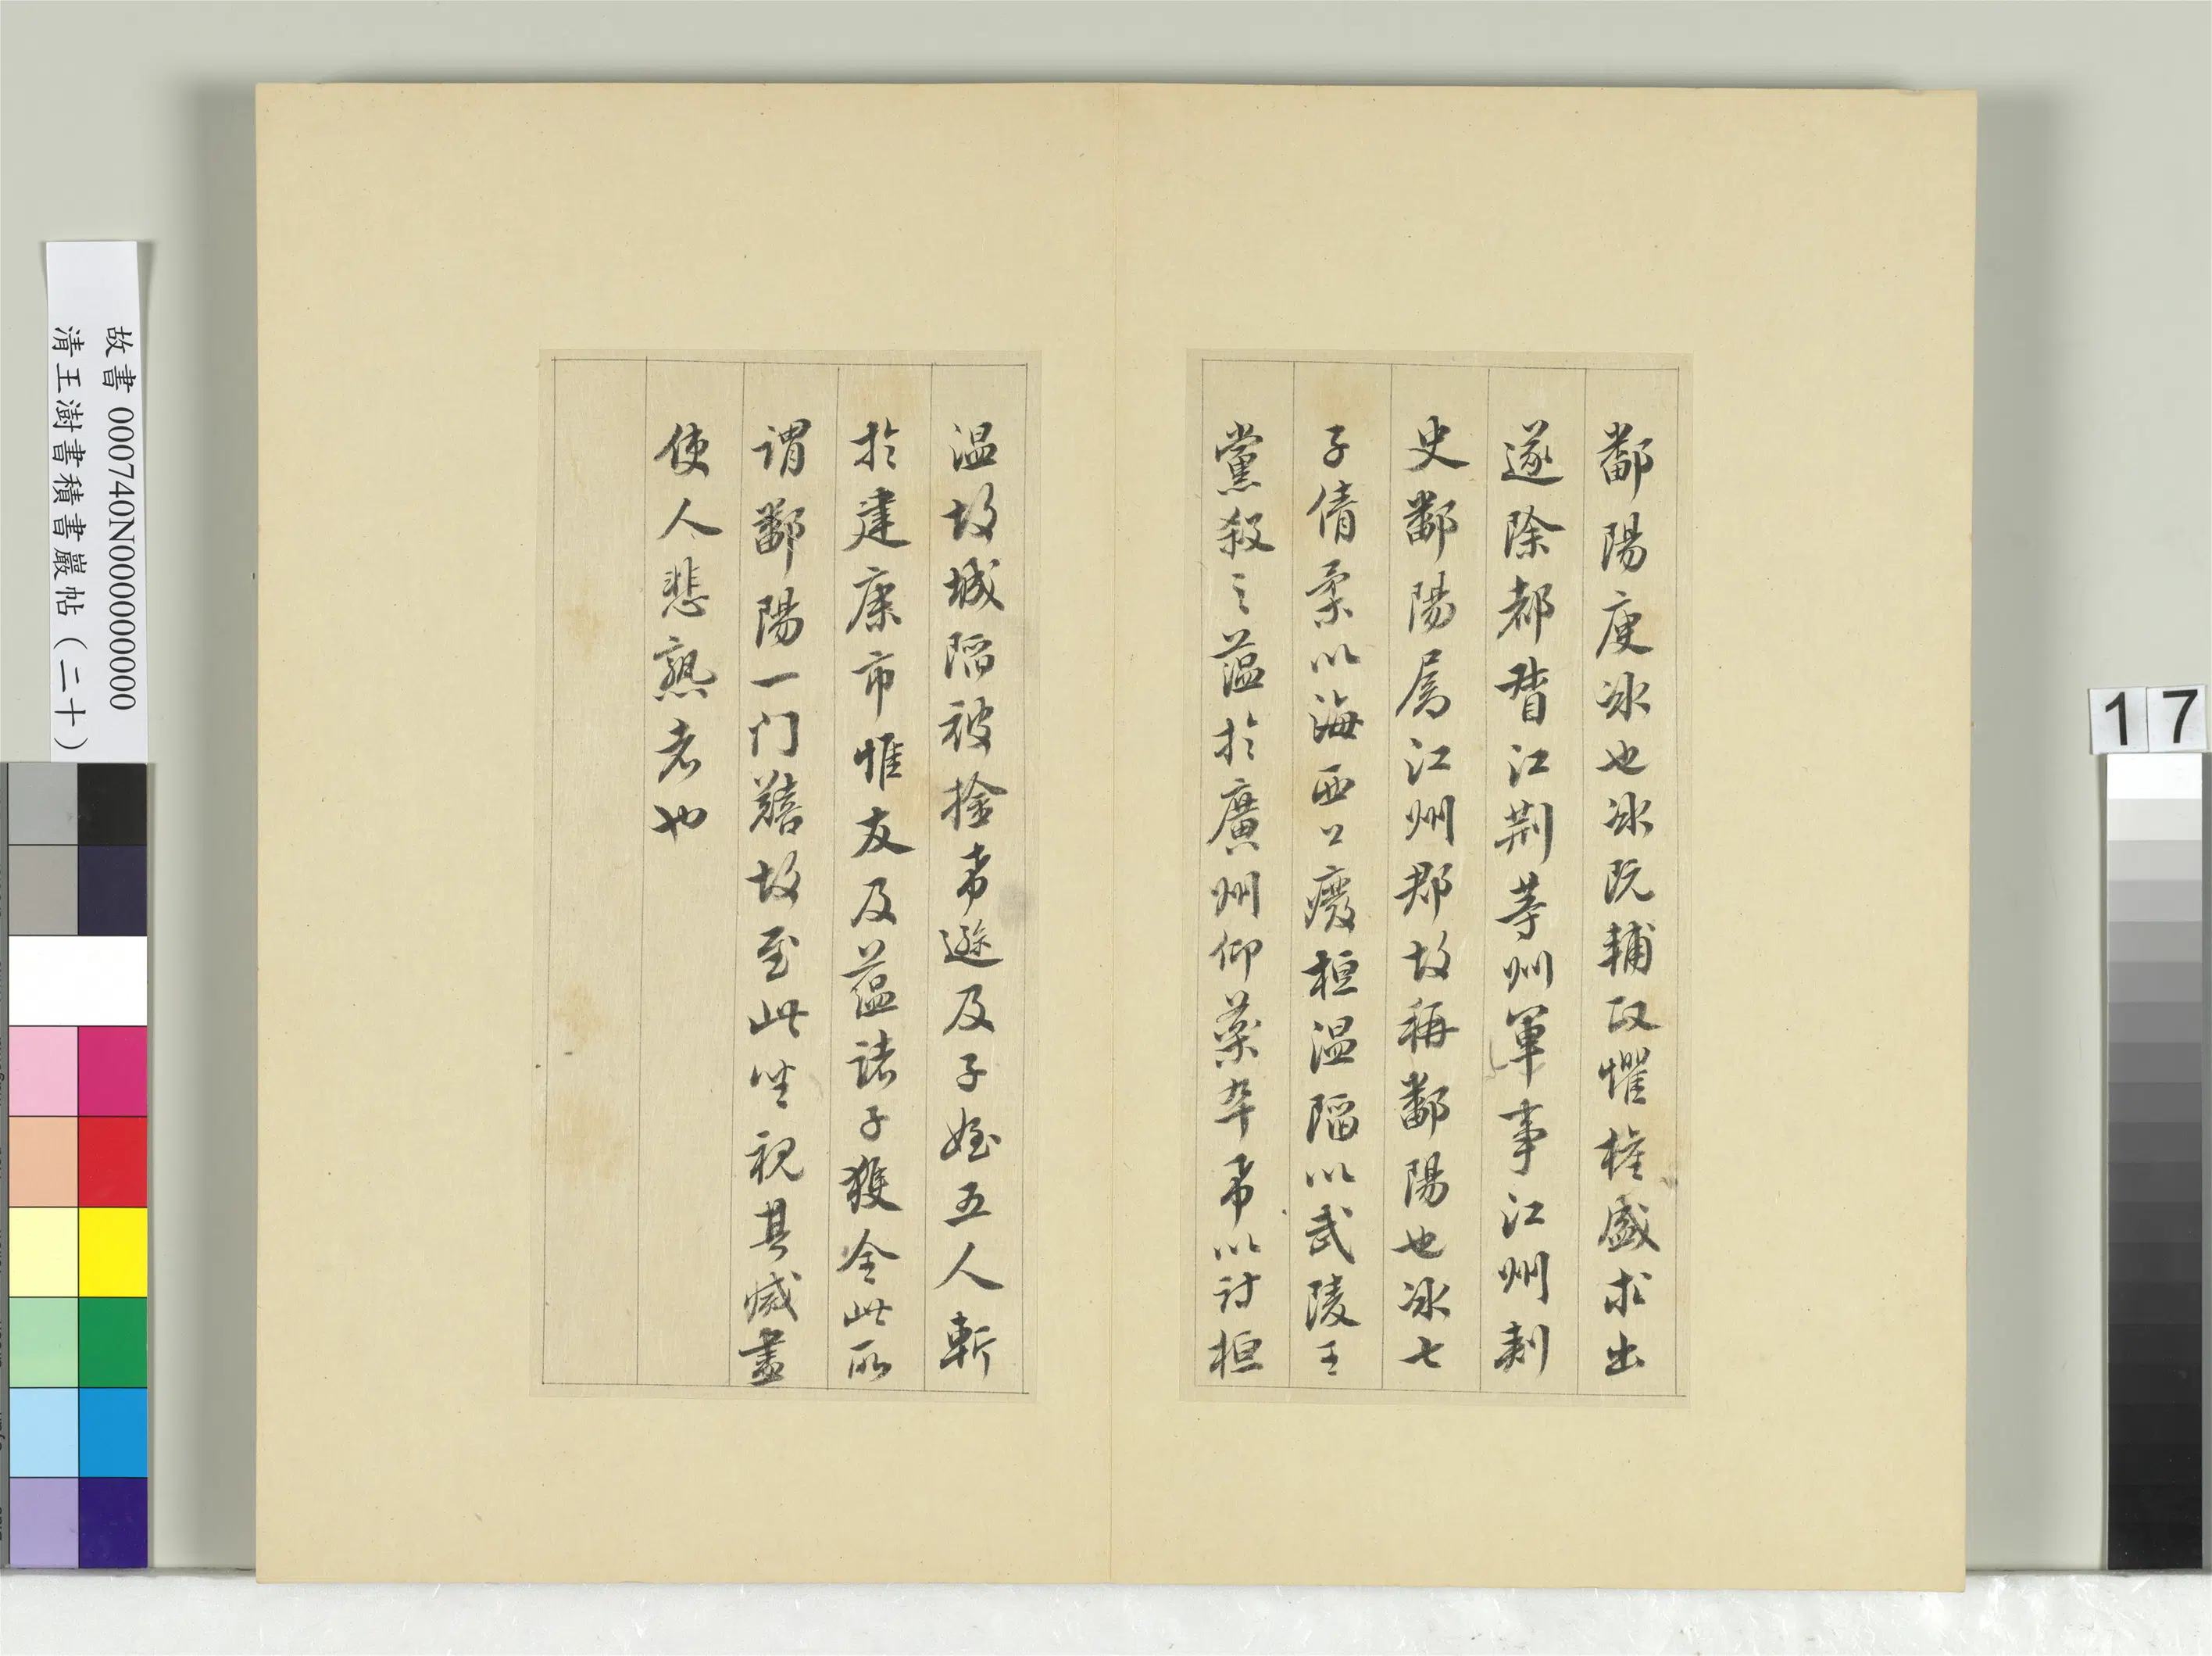 鄱陽庾冰也冰既輔政懼權盛求出
遂除都督江荆等州軍事江州刺
史鄱陽屬江州郡故稱鄱陽也冰七
子倩柔以海西公廢桓溫陷以武陵王
黨殺之蘊於廣州仰藥卒希以討桓
溫故城陷被擒希邈及子姪五人斬
於建康市惟友及蘊諸子獲全此所
謂鄱陽一门艱故至此坐視其滅盡
使人悲熟者也
故書 000740N000000000
清王澍書積書巖帖（二十）
17